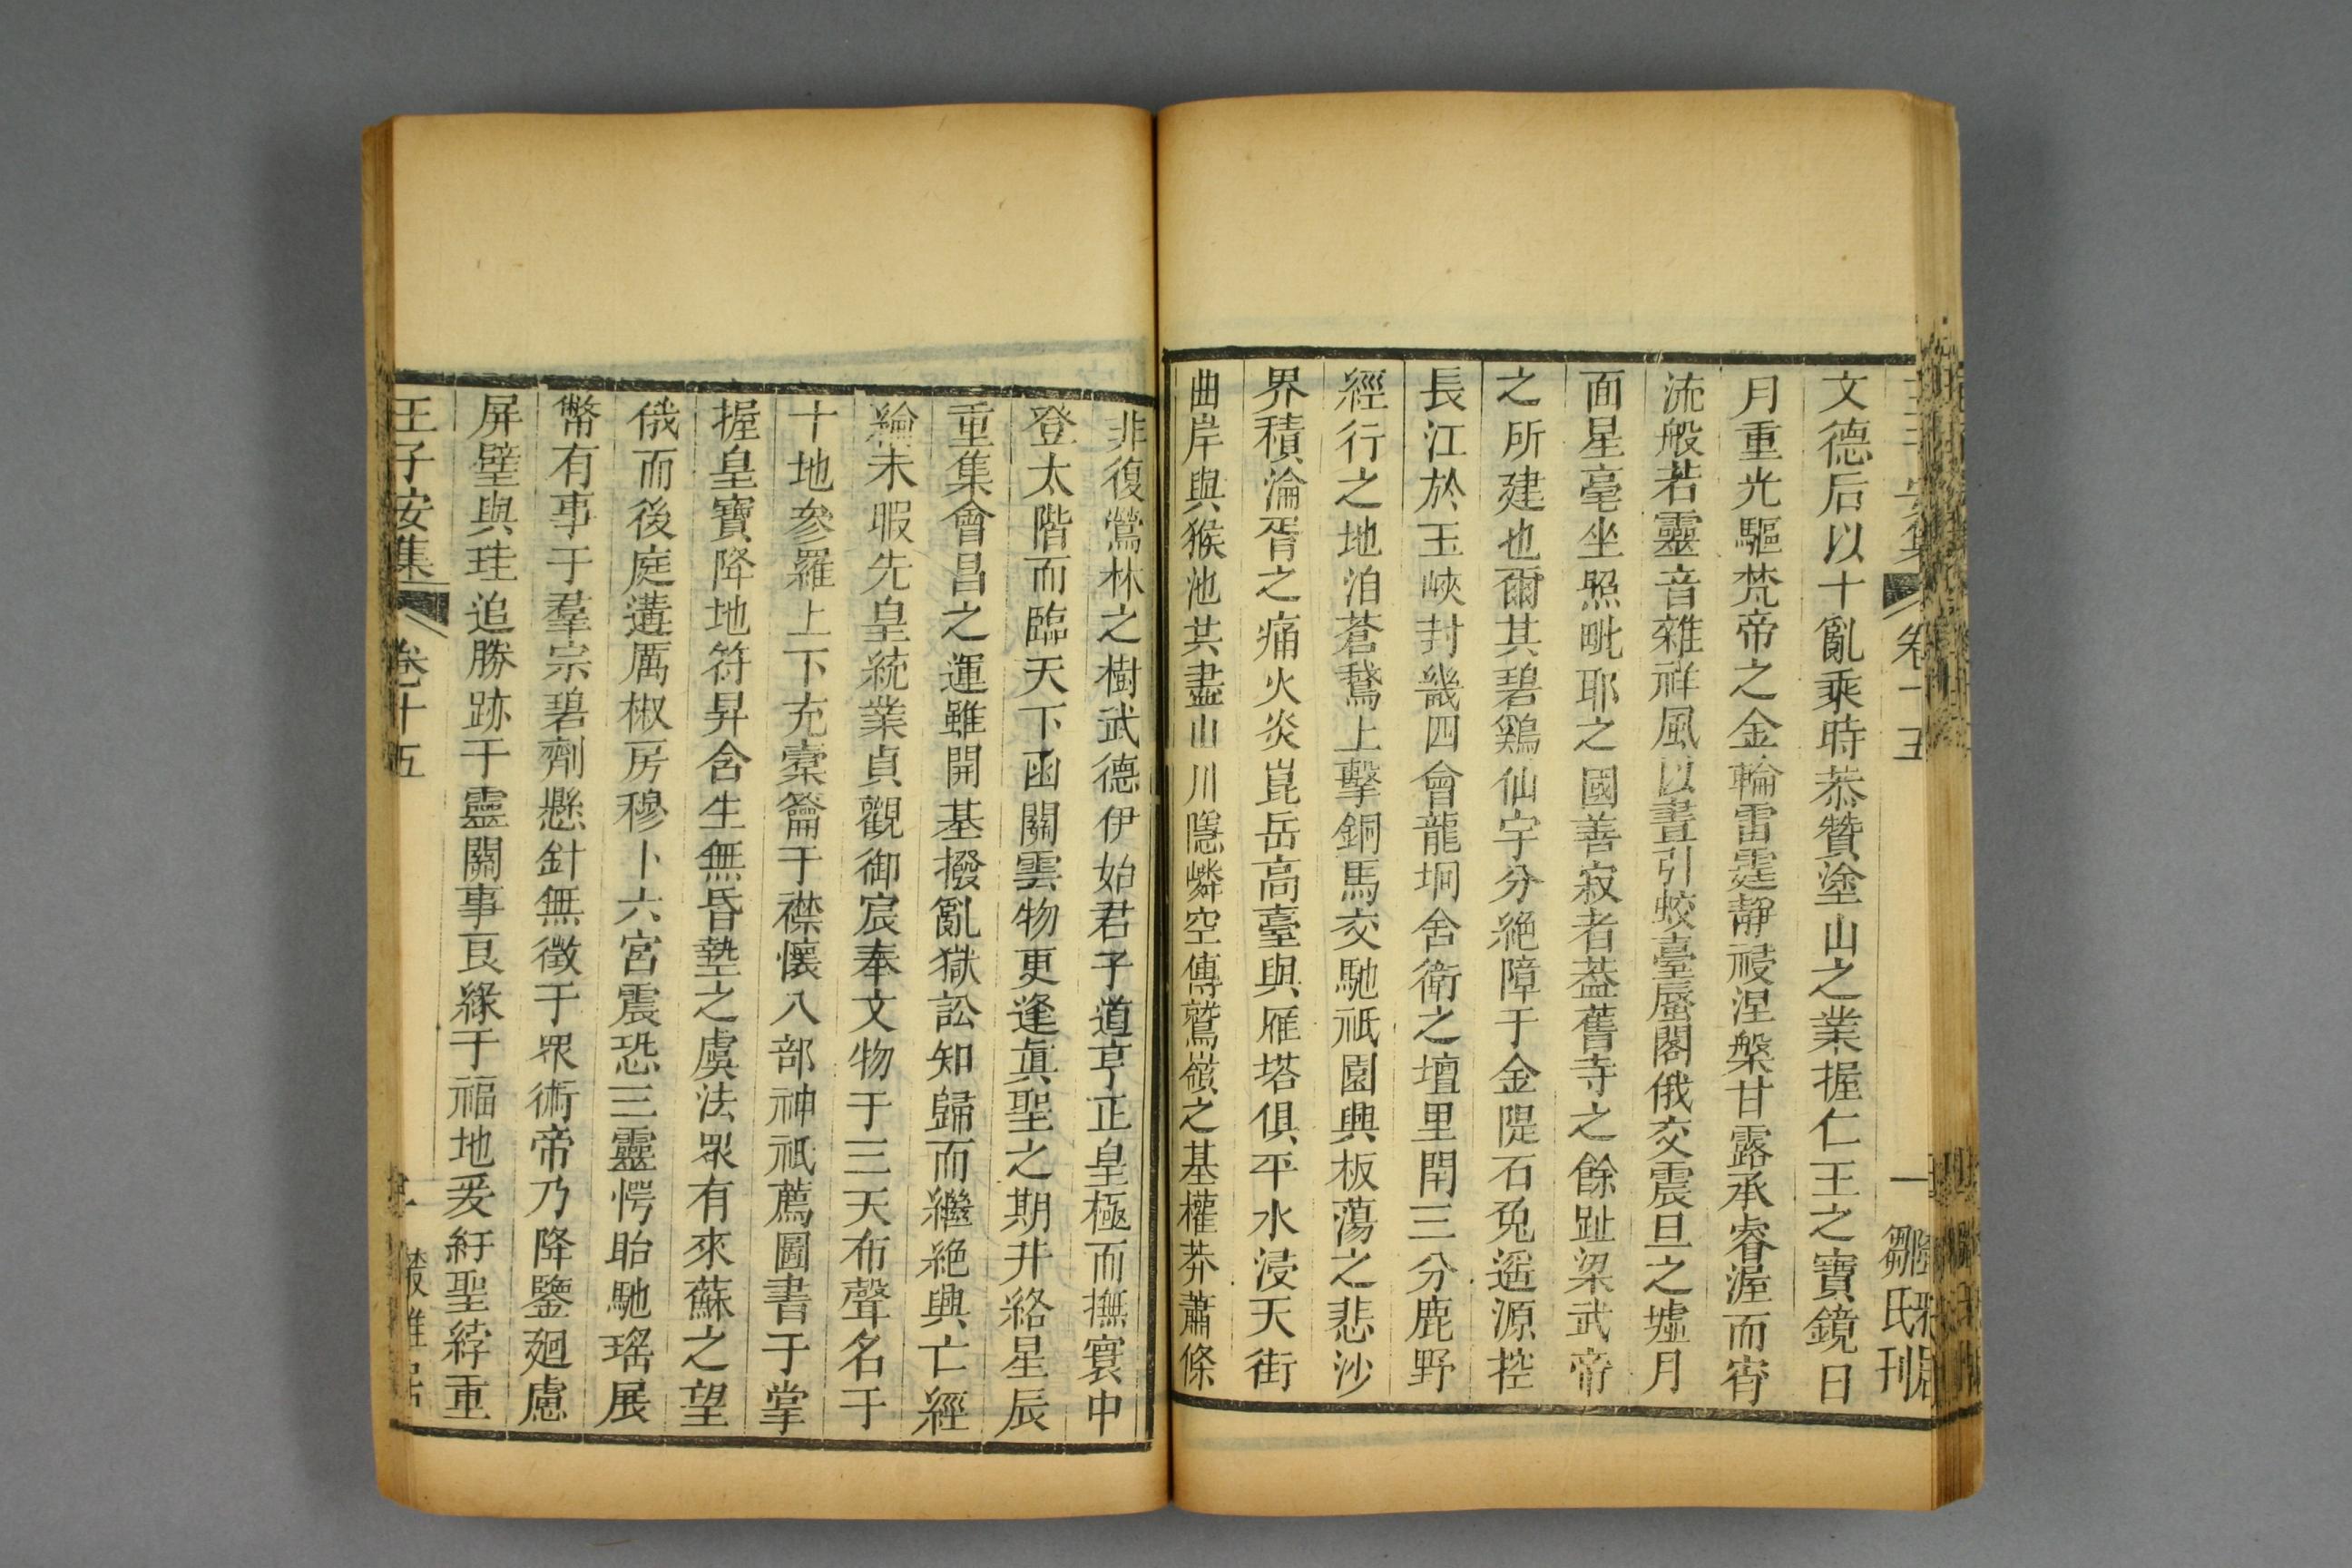 王子安集 卷十五 一 鄒氏刊
文德后以十亂乘時恭贊塗山之業握仁王之寶鏡日
月重光驅梵帝之金輪雷霆靜祲涅槃甘露承睿渥而宵
流般若靈音雜祥風以晝引蛟臺蜃閣俄交震旦之墟月
面星毫坐照毗耶之國善寂者葢舊寺之餘趾梁武帝
之所建也爾其碧鷄仙宇分絶障于金隄石兔遥源控
長江於玉峽封畿四會龍坰舍衛之壇里閈三分鹿野
經行之地洎蒼鵞上擊銅馬交馳祇園興板蕩之悲沙
界積淪胥之痛火炎崑岳高臺與雁塔俱平水浸天街
曲岸與猴池共盡山川隱嶙空傳鷲嶺之基權莽蕭條
非復鶯林之樹武德伊始君子道亨正皇極而撫寰中
登太階而臨天下函關雲物更逢眞聖之期井絡星辰
重集會昌之運雖開基撥亂獄訟知歸而繼絶興亡經
綸未暇先皇統業貞觀御宸奉文物于三天布聲名于
十地參羅上下充槖籥于襟懷八部神祇薦圖書于掌
握皇寶降地符昇含生無昏墊之虞法眾有來蘇之望
俄而後庭遘厲椒房穆卜六宮震恐三靈愕眙馳瑤展
幣有事于羣宗碧劑懸針無徵于眾術帝乃降鑒廻慮
屏璧與珪追勝跡于靈關事良緣于福地爰紆聖綍重
王子安集 卷十五